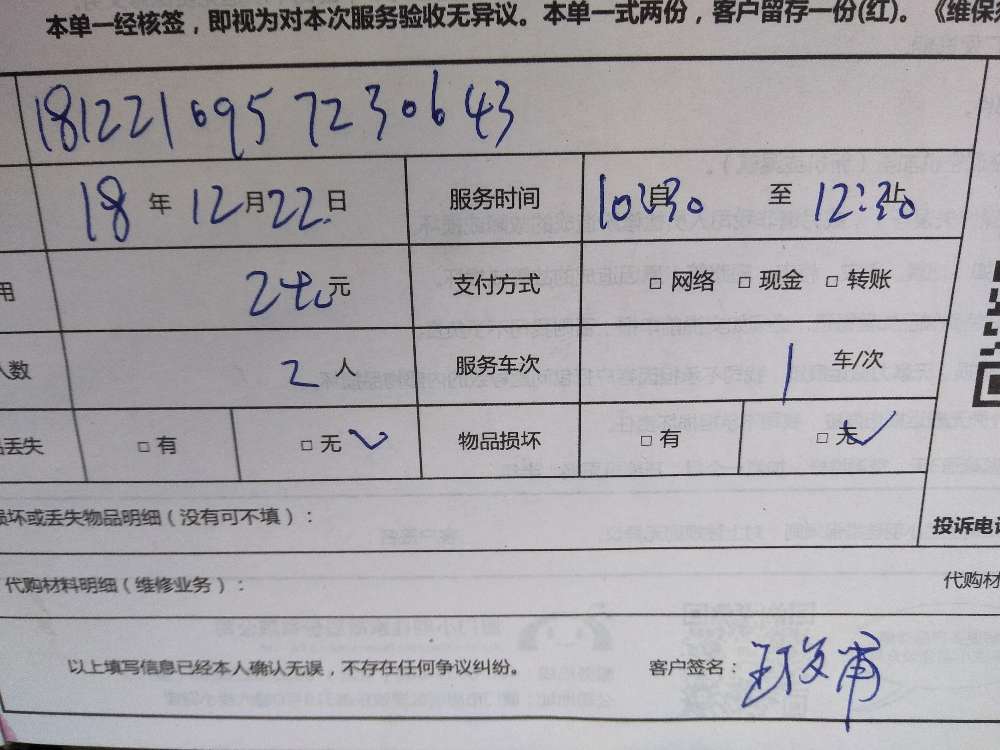 本单一经核签，即视为对本次服务验收无异议。本单一式两份，客户留存一份(红)。《维保
181221095 7230643
18 年 12月22日 服务时间 10:30 至 12:30
用 240元 支付方式 □ 网络 □ 现金 □ 转账
人数 2 人 服务车次 1 车/次
品丢失 □ 有 □ 无 ✓ 物品损坏 □ 有 □ 无 ✓
损坏或丢失物品明细（没有可不填）：
投诉电话
代购材料明细（维修业务）：
代购材
以上填写信息已经本人确认无误，不存在任何争议纠纷。 客户签名：